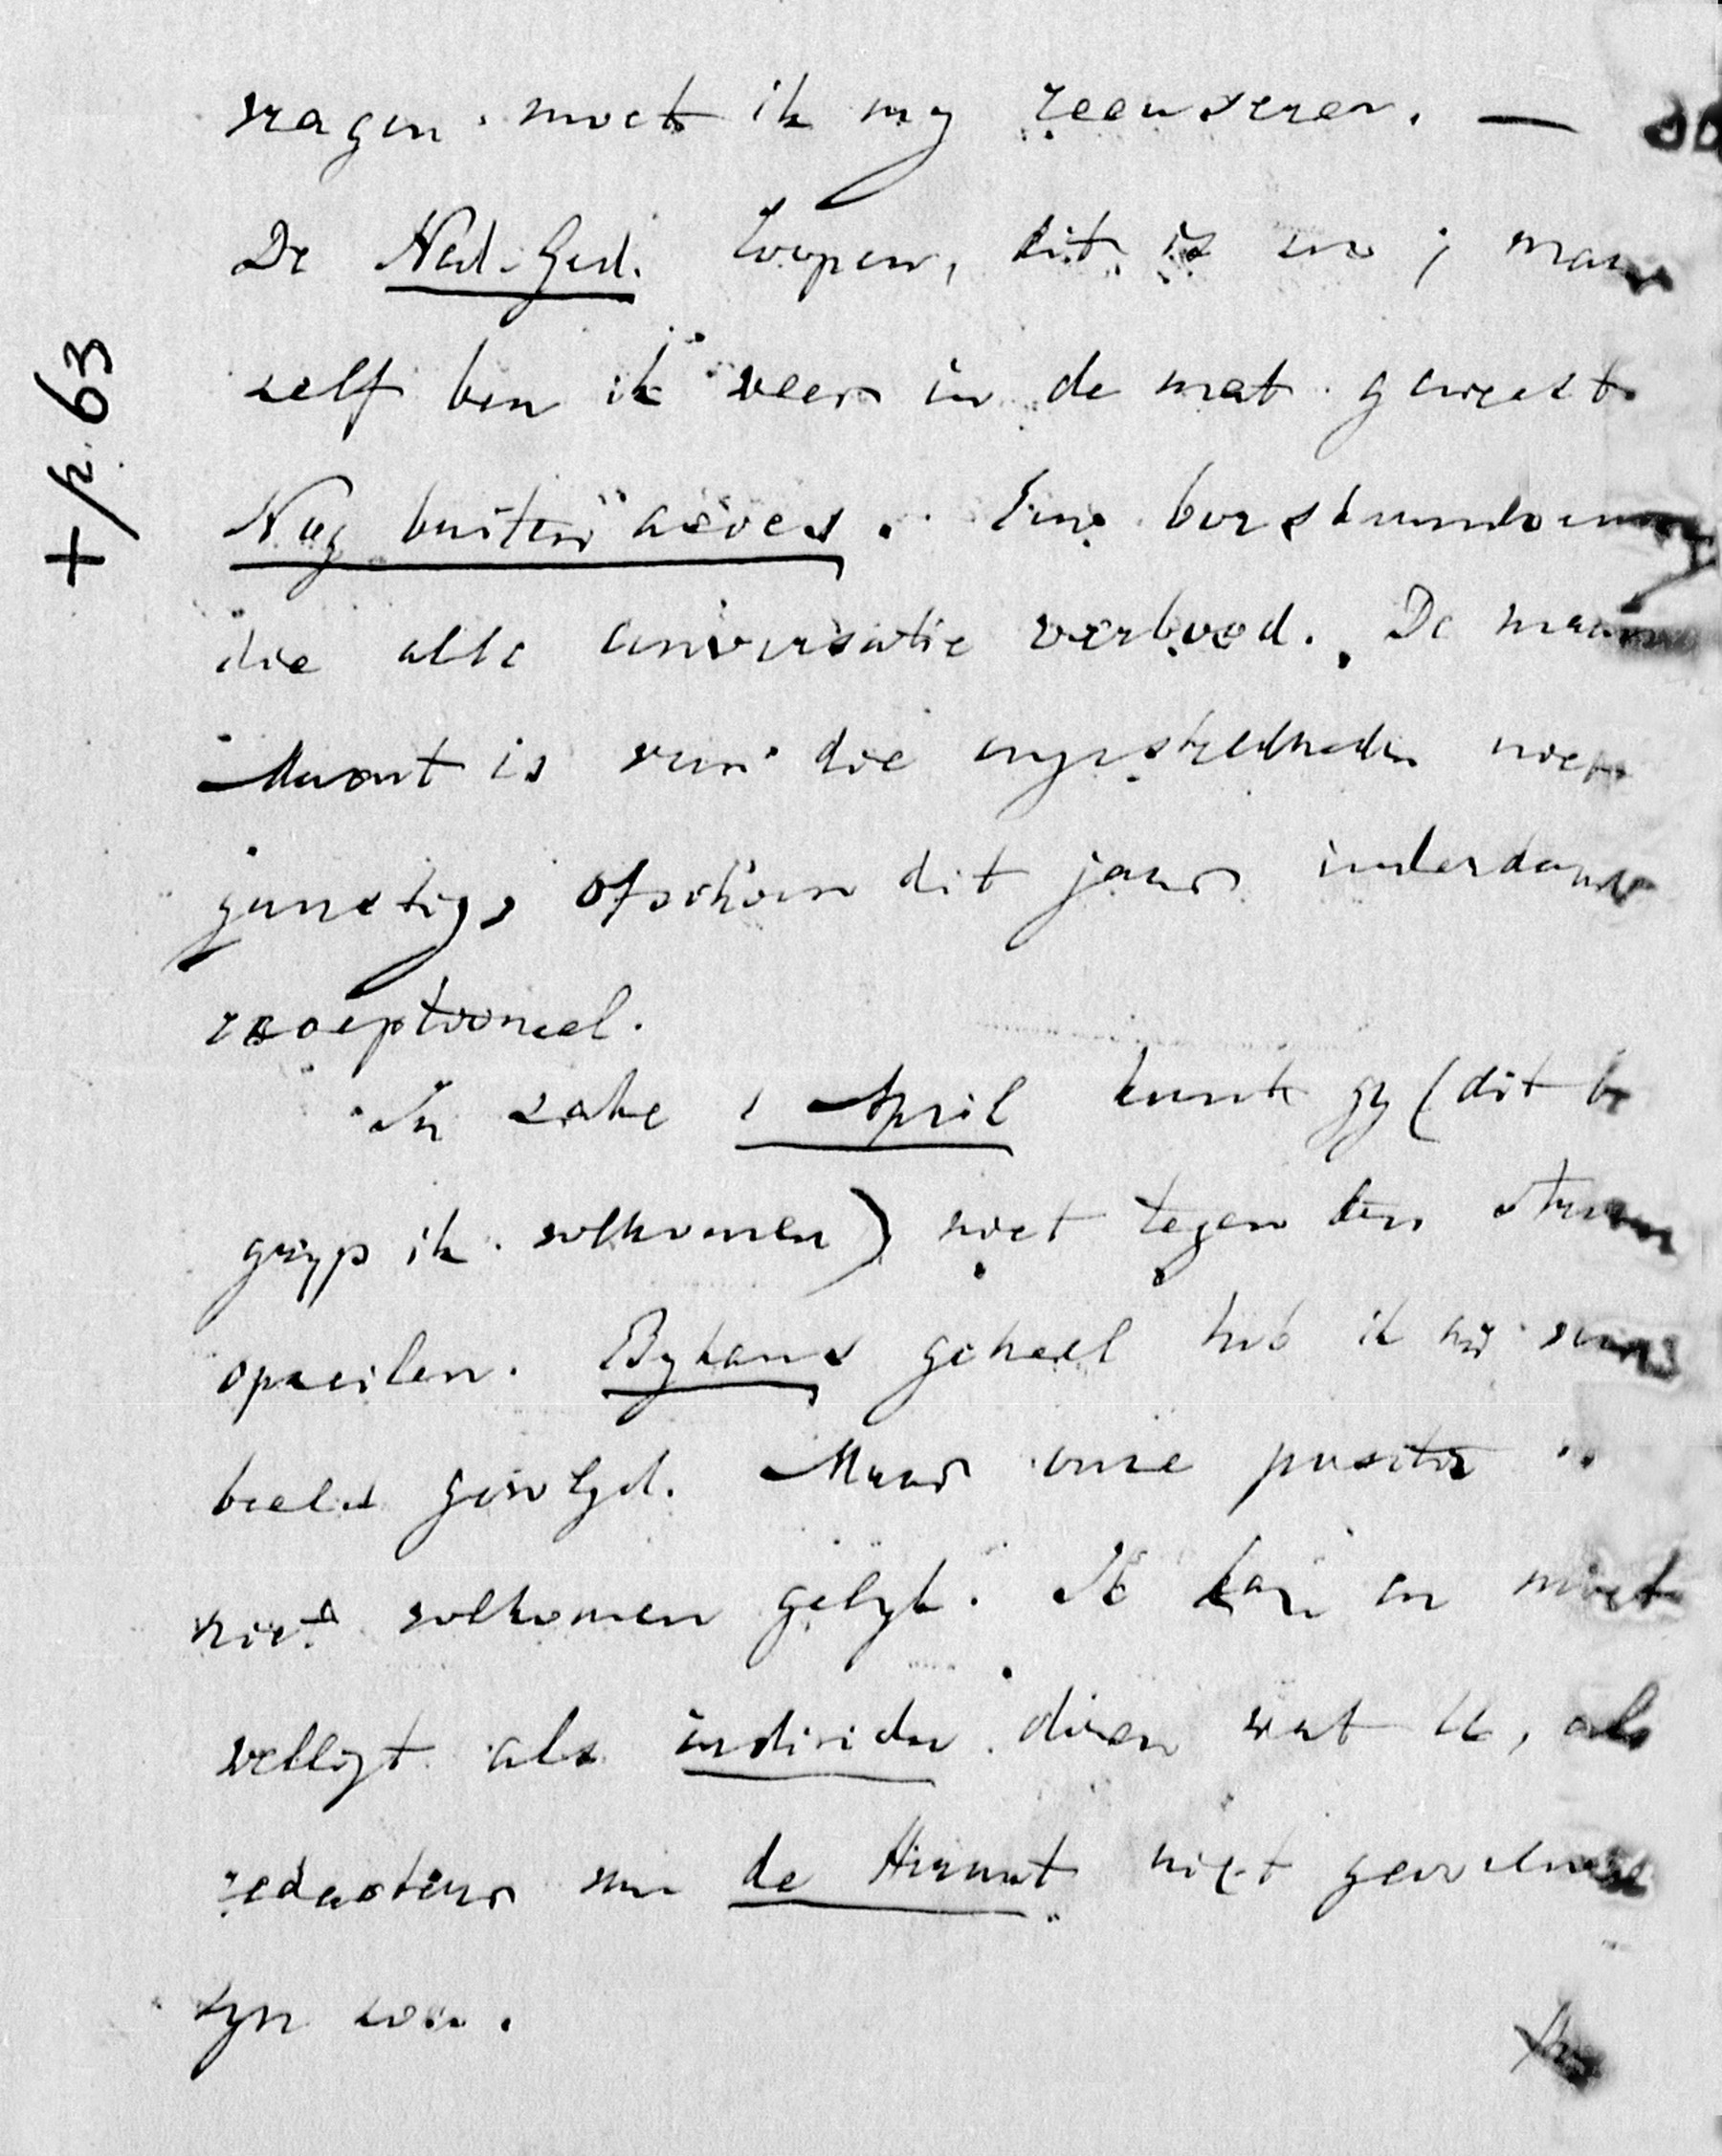 vragen moet ik my recuseren. —
De Ned. Ged. loopen, dit is zoo; maar
zelf ben ik weer in de mat geweest
Nog buiten acces. Een borstaandoening
die alle conversatie verbood. De maand
Maart is van die ongesteldheden niet
gunstig, ofschoon dit jaar inderdaad
exceptioneel.
In zake 1 April kunt gy (dit be
gryp ik volkomen) niet tegen den stroom
opzeilen. Bykans geheel heb ik uw voor
beeld gevolgd. Maar onze positie is
niet volkomen gelyk. Ik kan en moet
welligt als individu doen wat U, als
redacteur van de Heraut niet geoorloofd
zyn zou.
+ p. 63